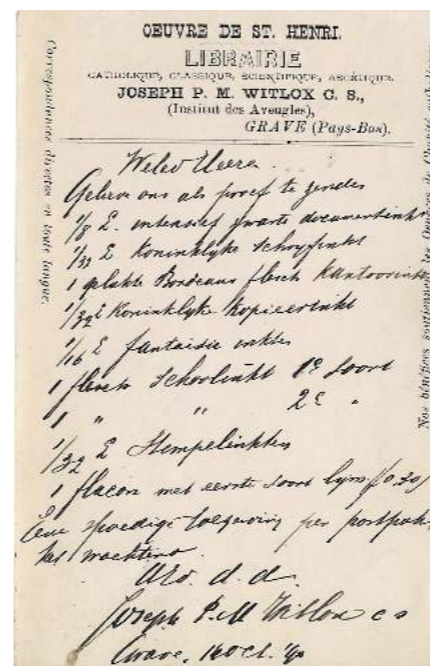 OEUVRE DE ST. HENRI.
LIBRAIRIE
CATHOLIQUE, CLASSIQUE, SCIENTIFIQUE, ASCÉTIQUE.
JOSEPH P. M. WITLOX C. S.,
(Institut des Aveugles),
GRAVE (Pays-Bas).
Correspondances directes en toute langue.
Weled Heeren
Gelieve ons als proef te zenden
1/8 L. intensief zwarte documentinkt
1/32 L Koninklyke Schryfinkt
1 gelakte Bordeaux flesch Kantoorinkt
1/32 L Koninklyke Kopieerinkt
1/16 L fantaisie inkten
1 flesch Schoolinkt 1e Soort
1 " " 2e "
1/32 L Stempelinkten
1 flacon met eerste soort lym (f 0.30)
Eene spoedige toezending per postpak-
ket wachtend.
UEd. d. d.
Joseph P. M Witlox c s
Grave, 16 Oct. '90
Nos bénéfices soutiennent les Oeuvres de Charité